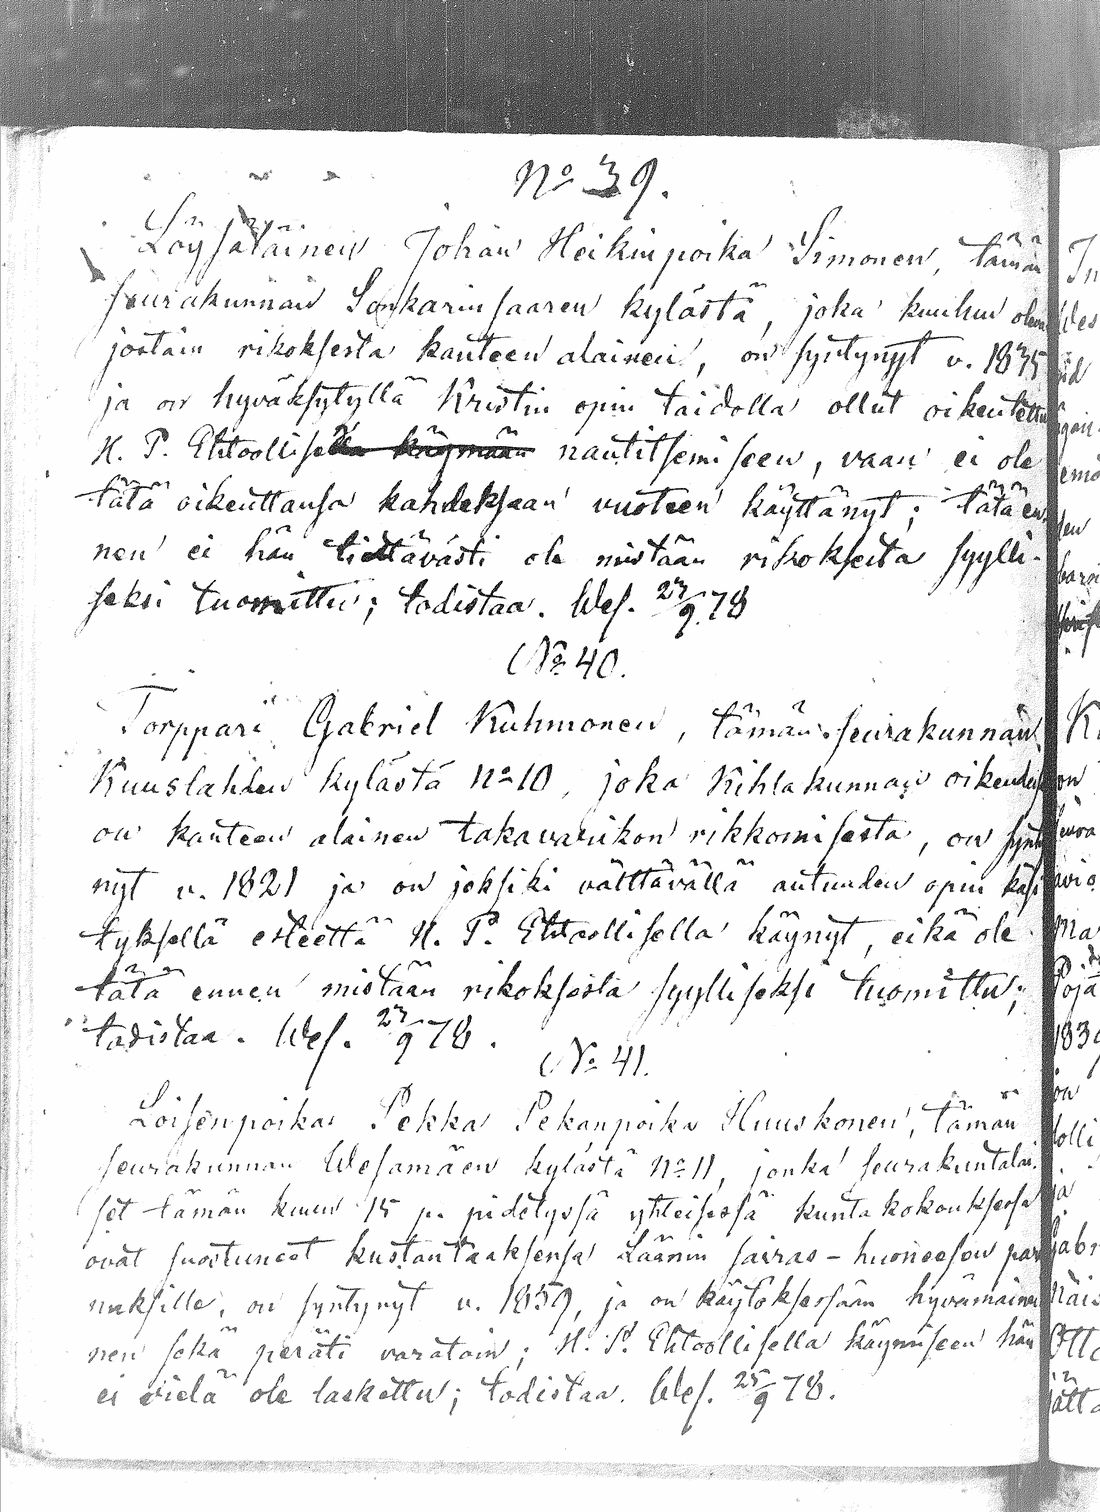 No 39.
Löysäläinen Johan Heikinpoika Simonen, tämän
seurakunnan Sonkarinsaaren kylästä, joka kuuluu olem
jostain rikoksesta kanteen alainen, on syntynyt v. 1835
ja on hyväksytyllä Kristin opin taidolla ollut oikeutettu
H. P. Ehtoollisella käymään nautitsemiseen, vaan ei ole
tätä oikeuttansa kahdeksaan vuoteen käyttänyt; tätä en-
nen ei hän tiettävästi ole mistään rikoksesta syylli-
seksi tuomittu; todistaa. Wes. 27/9 78
No 40.
Torppari Gabriel Kuhmonen, tämän seurakunnan
Kuuslahden kylästä No 10, joka Kihlakunnan oikeudessa
on kanteen alainen takavarikon rikkomisesta, on synty
nyt v. 1821 ja on joksiki välttävällä autuuden opin käsi
tyksellä esteettä H. P. Ehtoollisella käynyt, eikä ole
tätä ennen mistään rikoksesta syylliseksi tuomittu;
todistaa. Wes. 27/9 78.
No 41.
Loisenpoika Pekka Pekanpoika Huuskonen, tämän
seurakunnan Wesamäen kylästä No 11, jonka seurakuntalai-
set tämän kuun 15 p. pidetyssä yhteisessä kuntakokouksessa
ovat suostuneet kustantaaksensa Läänin sairas-huoneesen par
nuksille, on syntynyt v. 1859, ja on käytöksessään hyvämainei
nen sekä peräti varatoin; H. P. Ehtoollisella käymiseen hän
ei vielä ole laskettu; todistaa. Wes. 25/9 78.